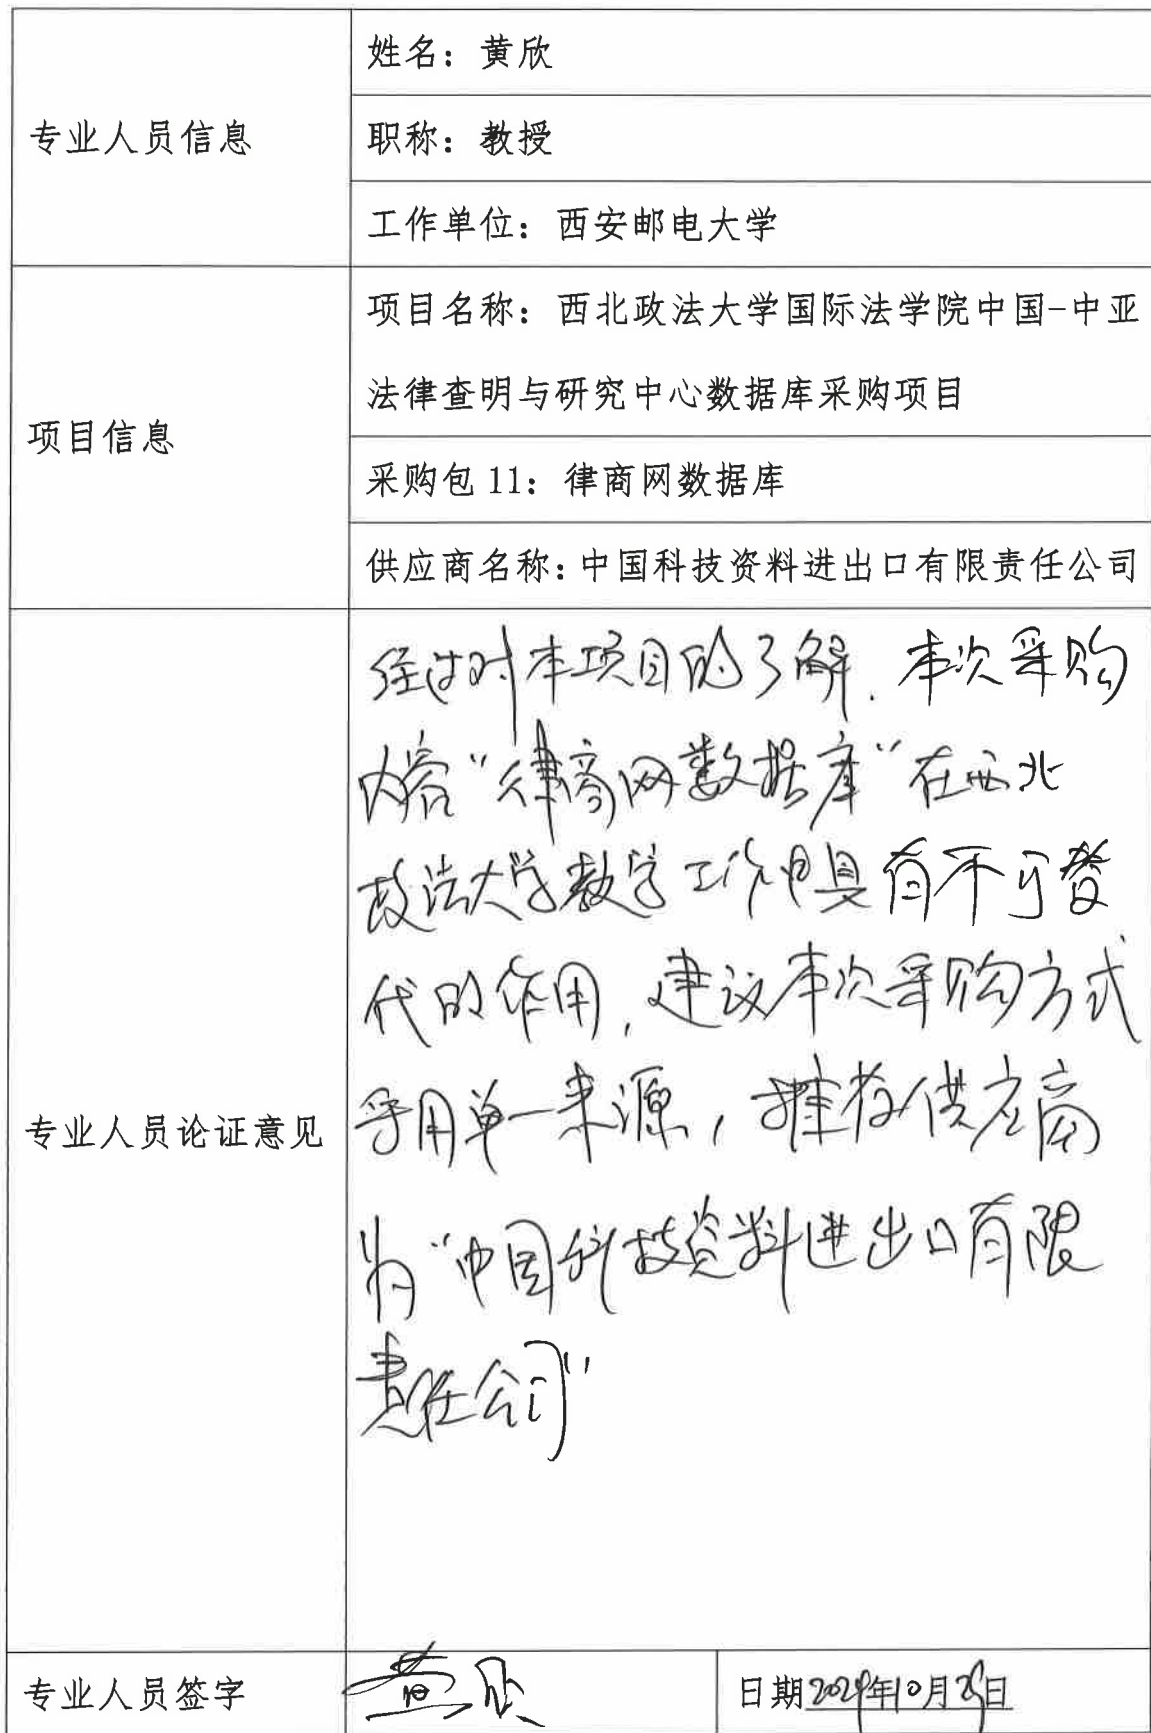 专业人员信息
姓名：黄欣
职称：教授
工作单位：西安邮电大学
项目信息
项目名称：西北政法大学国际法学院中国-中亚
法律查明与研究中心数据库采购项目
采购包 11：律商网数据库
供应商名称：中国科技资料进出口有限责任公司
专业人员论证意见
经过对本项目的了解，本次采购
内容“律商网数据库”在西北
政法大学教学工作中具有不可替
代的作用，建议本次采购方式
采用单一来源，推荐供应商
为“中国科技资料进出口有限
责任公司”
专业人员签字
黄欣
日期 年10月 日